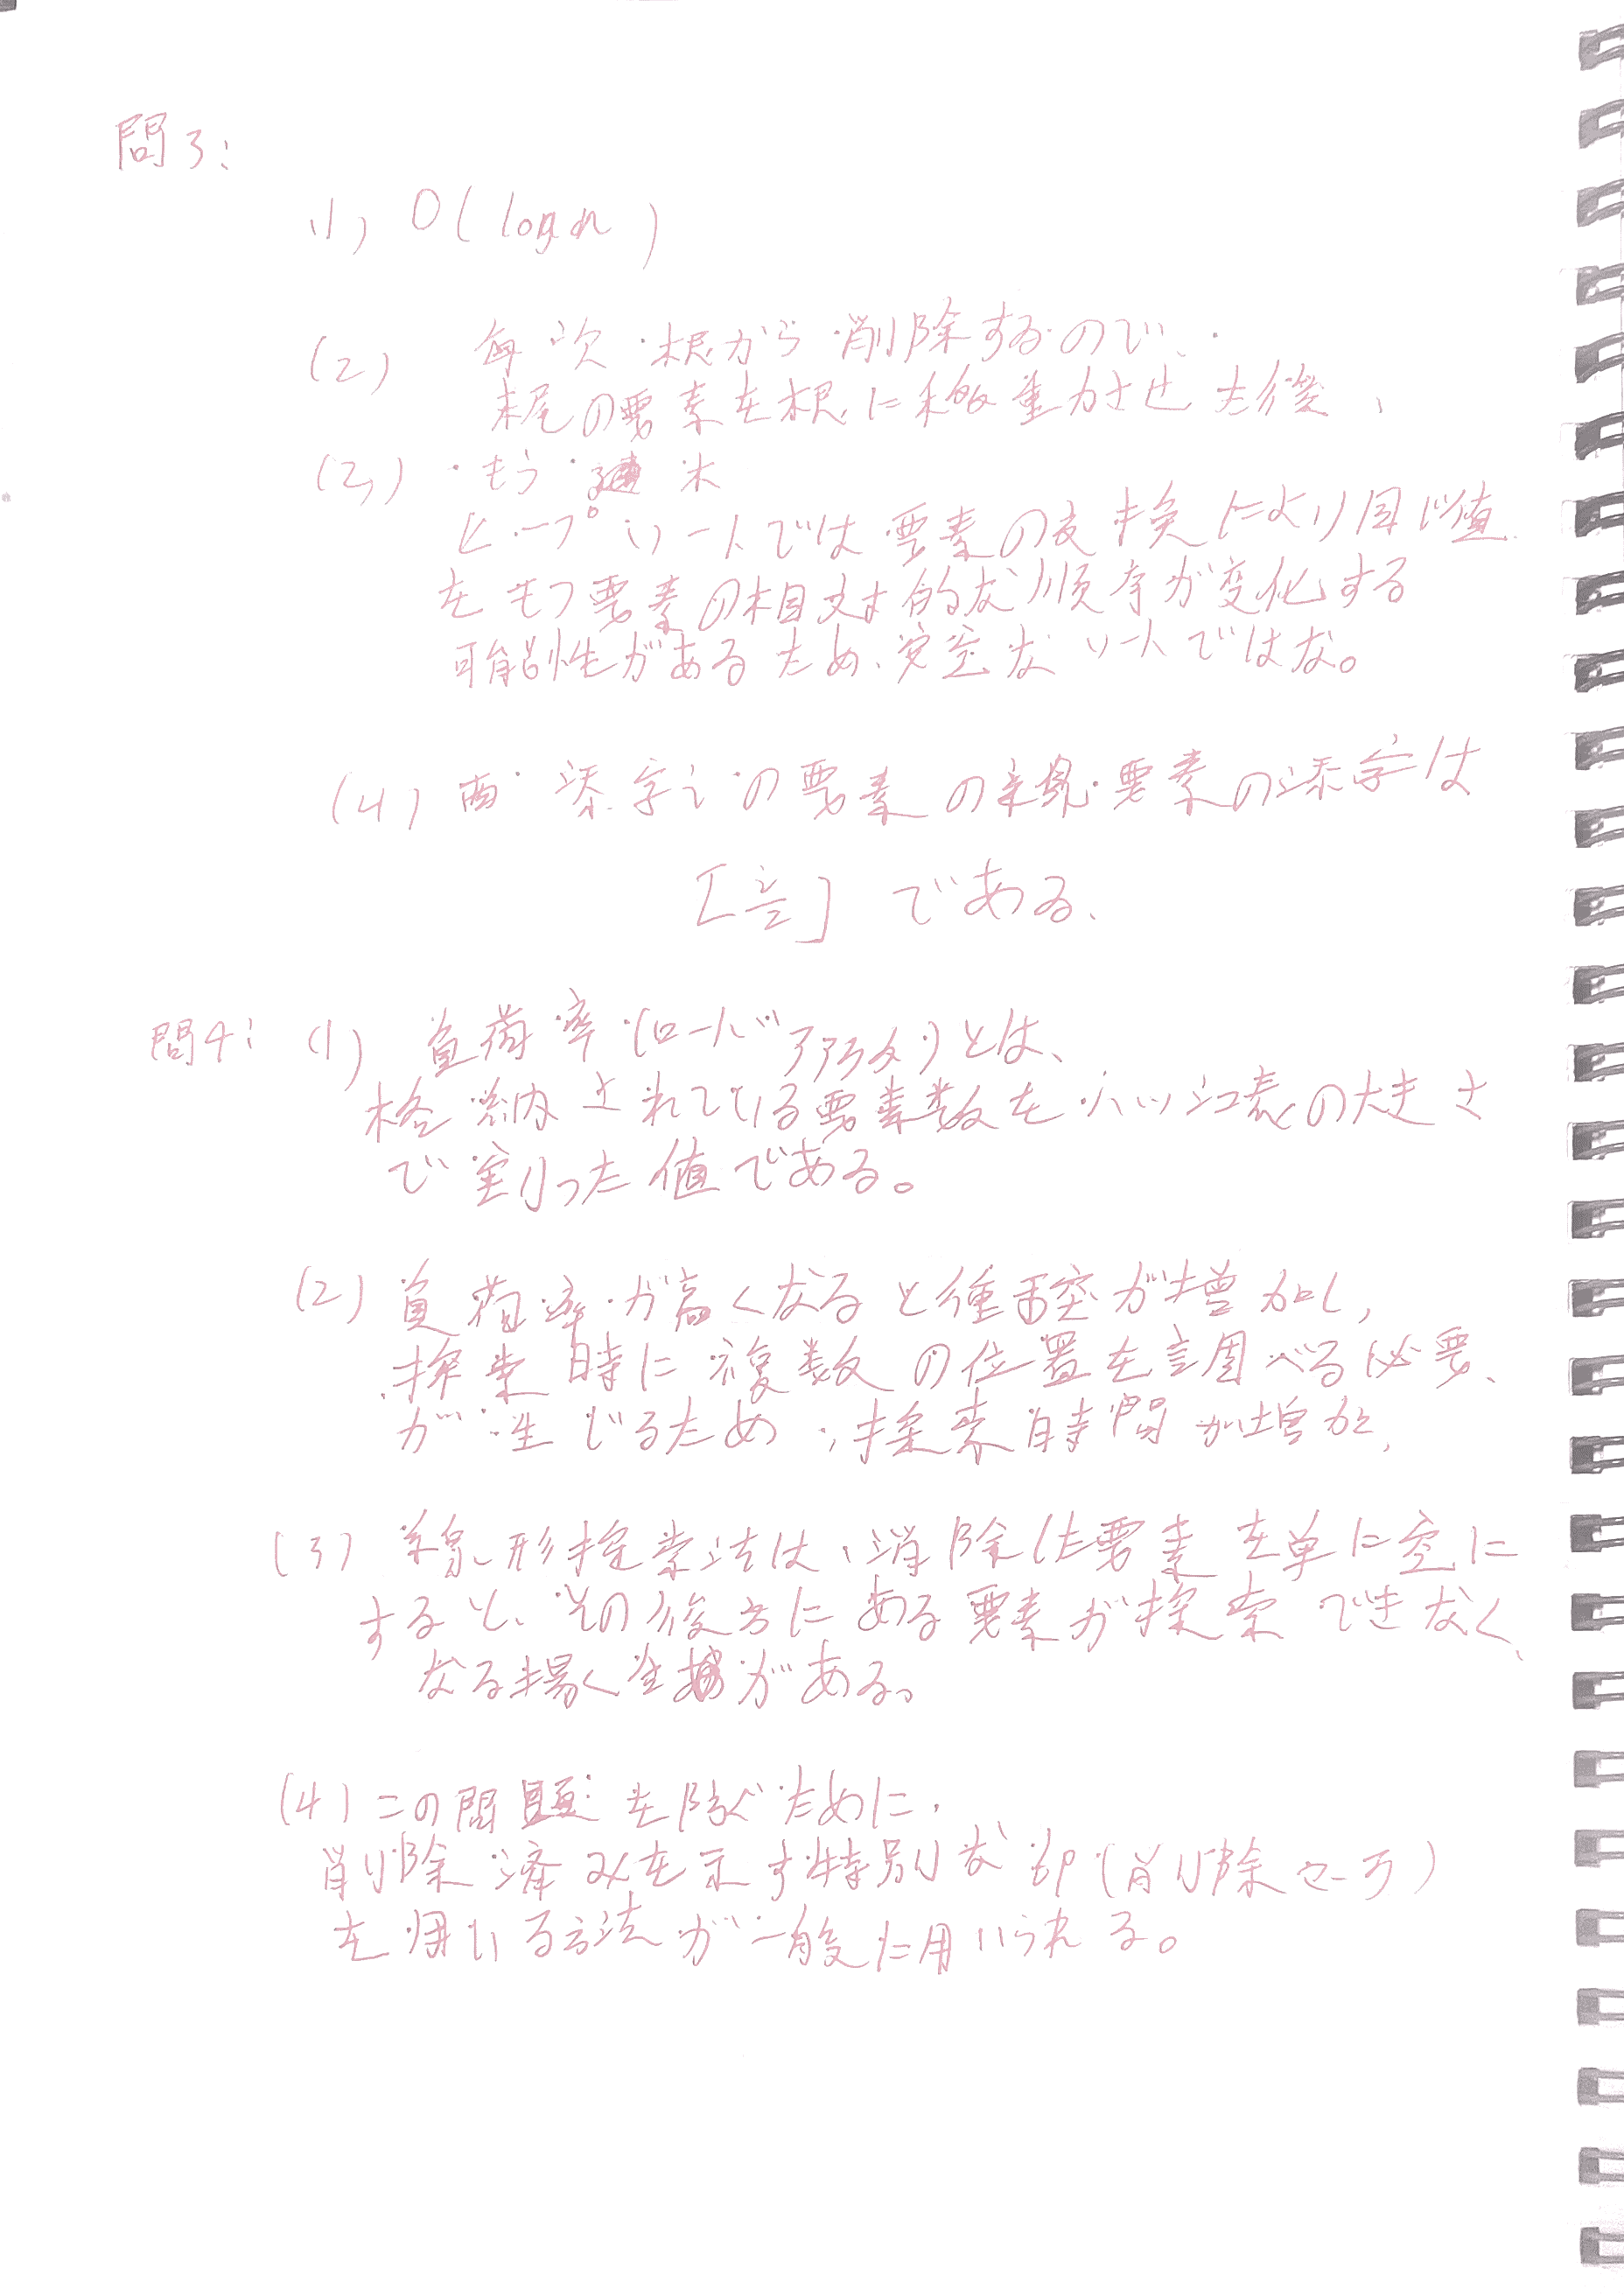 問3:
(1) O(log n)
(2) 每次根から削除するので、
末尾の要素を根に移動させた後、
(3) もう
ヒープソートでは要素の交換により同じ値
をもつ要素の相対的な順序が変化する
可能性があるため、安定なソートではな。
(4) 添字iの要素の親要素の添字は
⌊i/2⌋ である、
問4: (1) 負荷率(ロードファクタ)とは、
格納されている要素数をハッシュ表の大きさ
で割った値である。
(2) 負荷率が高くなると衝突が増加し,
探索時に複数の位置を調べる必要
が生じるため、探索時間が増加
(3) 線形探索法は、消除した要素を単に空に
すると、その後方にある要素が探索できなく
なる場 がある。
(4) この問題を防ぐために、
削除済みを示す特別な印(削除マーク)
を用いる方法が一般に用いられる。